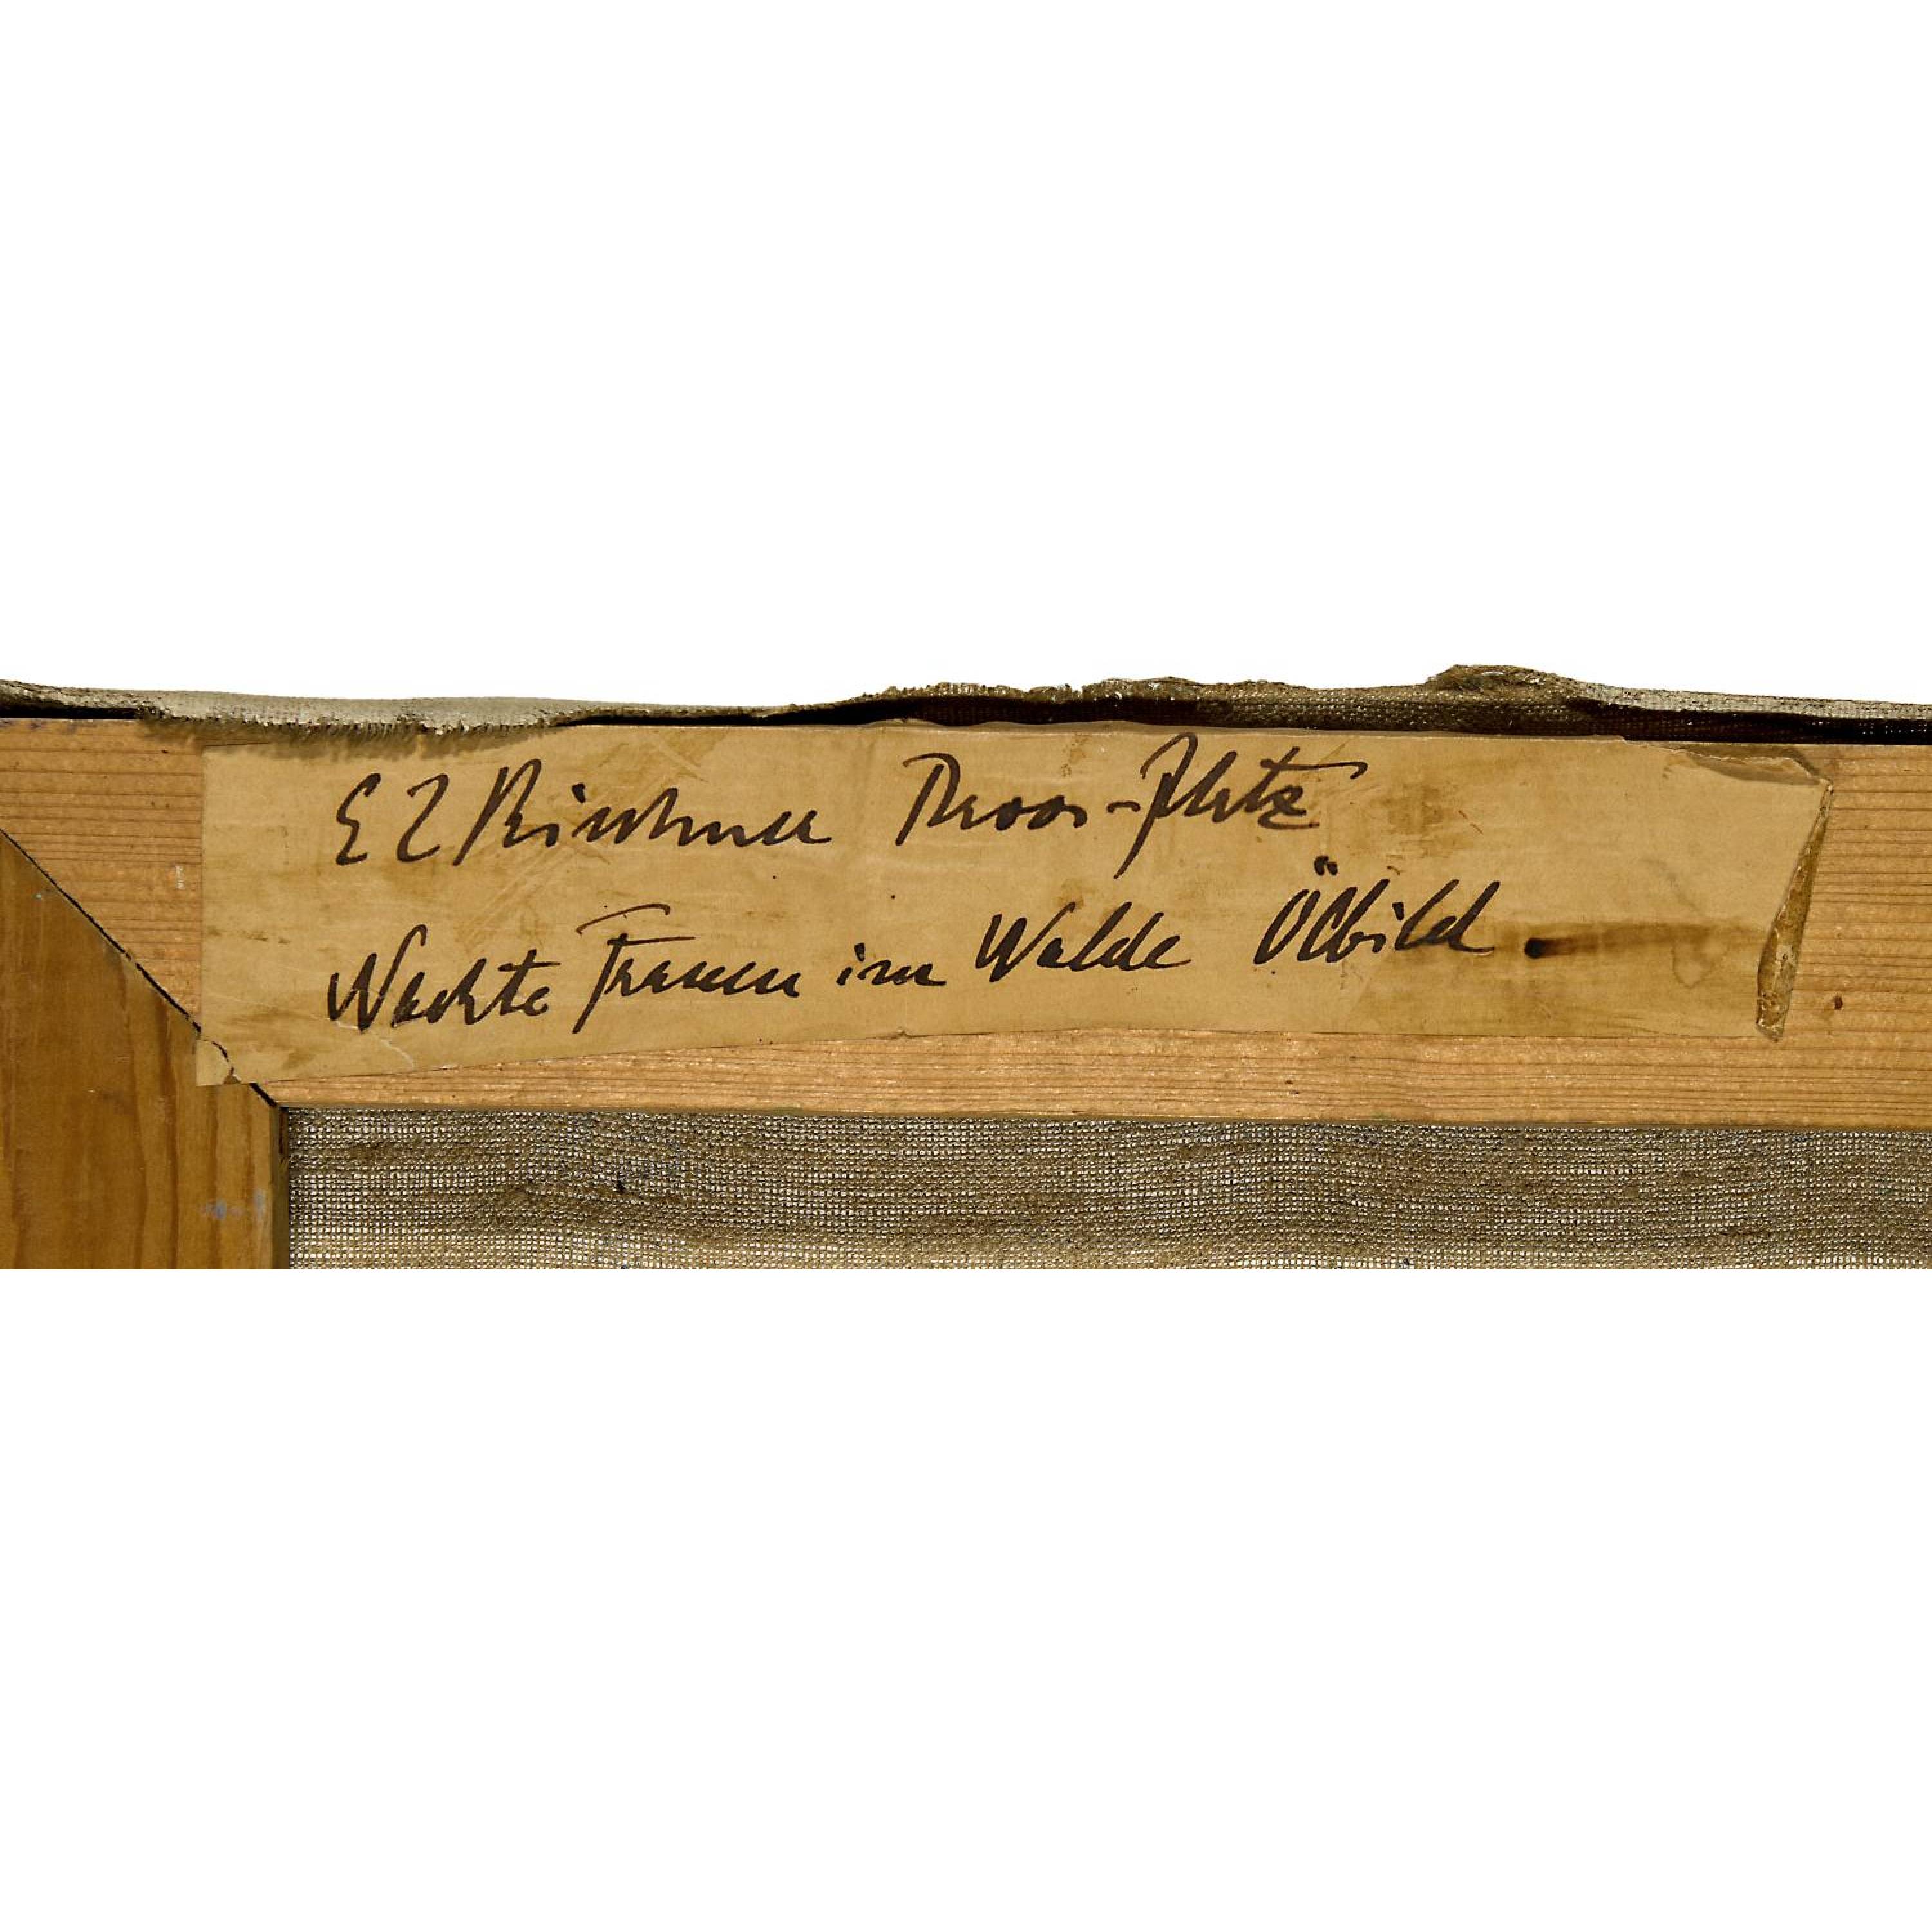 E L Kirchner Davos-Platz
Nackte Frauen im Walde Ölbild.